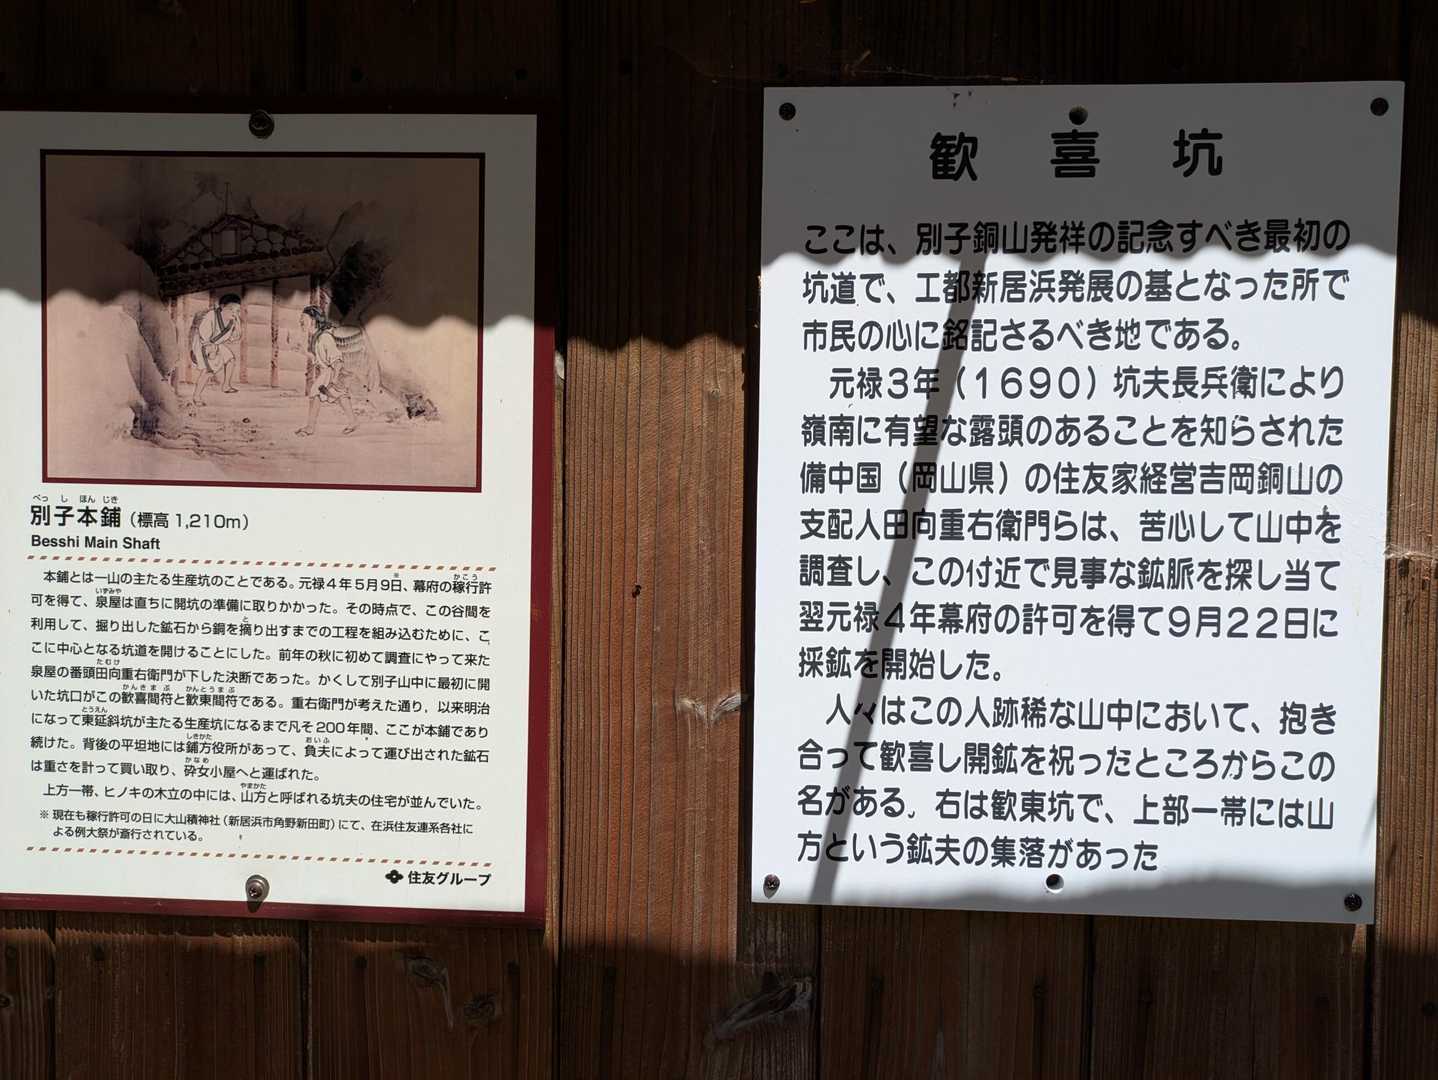 別子本鋪（標高1,210m）
べっしほんじき
Besshi Main Shaft
本鋪とは一山の主たる生産坑のことである。元禄４年５月９日※、幕府の稼行許
かこう
可を得て、泉屋は直ちに開坑の準備に取りかかった。その時点で、この谷間を
いずみや
利用して、掘り出した鉱石から銅を摘り出すまでの工程を組み込むために、こ
と
こに中心となる坑道を開けることにした。前年の秋に初めて調査にやって来た
泉屋の番頭田向重右衛門が下した決断であった。かくして別子山中に最初に開
たむけ
いた坑口がこの歓喜間符と歓東間符である。重右衛門が考えた通り，以来明治
かんきまぶ かんとうまぶ
になって東延斜坑が主たる生産坑になるまで凡そ200年間、ここが本鋪であり
とうえん
続けた。背後の平坦地には鋪方役所があって、負夫によって運び出された鉱石
しきかた おいふ
は重さを計って買い取り、砕女小屋へと運ばれた。
かなめ
上方一帯、ヒノキの木立の中には、山方と呼ばれる坑夫の住宅が並んでいた。
やまかた
※ 現在も稼行許可の日に大山積神社（新居浜市角野新田町）にて、在浜住友連系各社に
よる例大祭が斎行されている。
住友グループ
歓喜坑
ここは、別子銅山発祥の記念すべき最初の
坑道で、工都新居浜発展の基となった所で
市民の心に銘記さるべき地である。
元禄３年（１６９０）坑夫長兵衛により
嶺南に有望な露頭のあることを知らされた
備中国（岡山県）の住友家経営吉岡銅山の
支配人田向重右衛門らは、苦心して山中を
調査し、この付近で見事な鉱脈を探し当て
翌元禄４年幕府の許可を得て９月２２日に
採鉱を開始した。
人々はこの人跡稀な山中において、抱き
合って歓喜し開鉱を祝ったところからこの
名がある。右は歓東坑で、上部一帯には山
方という鉱夫の集落があった